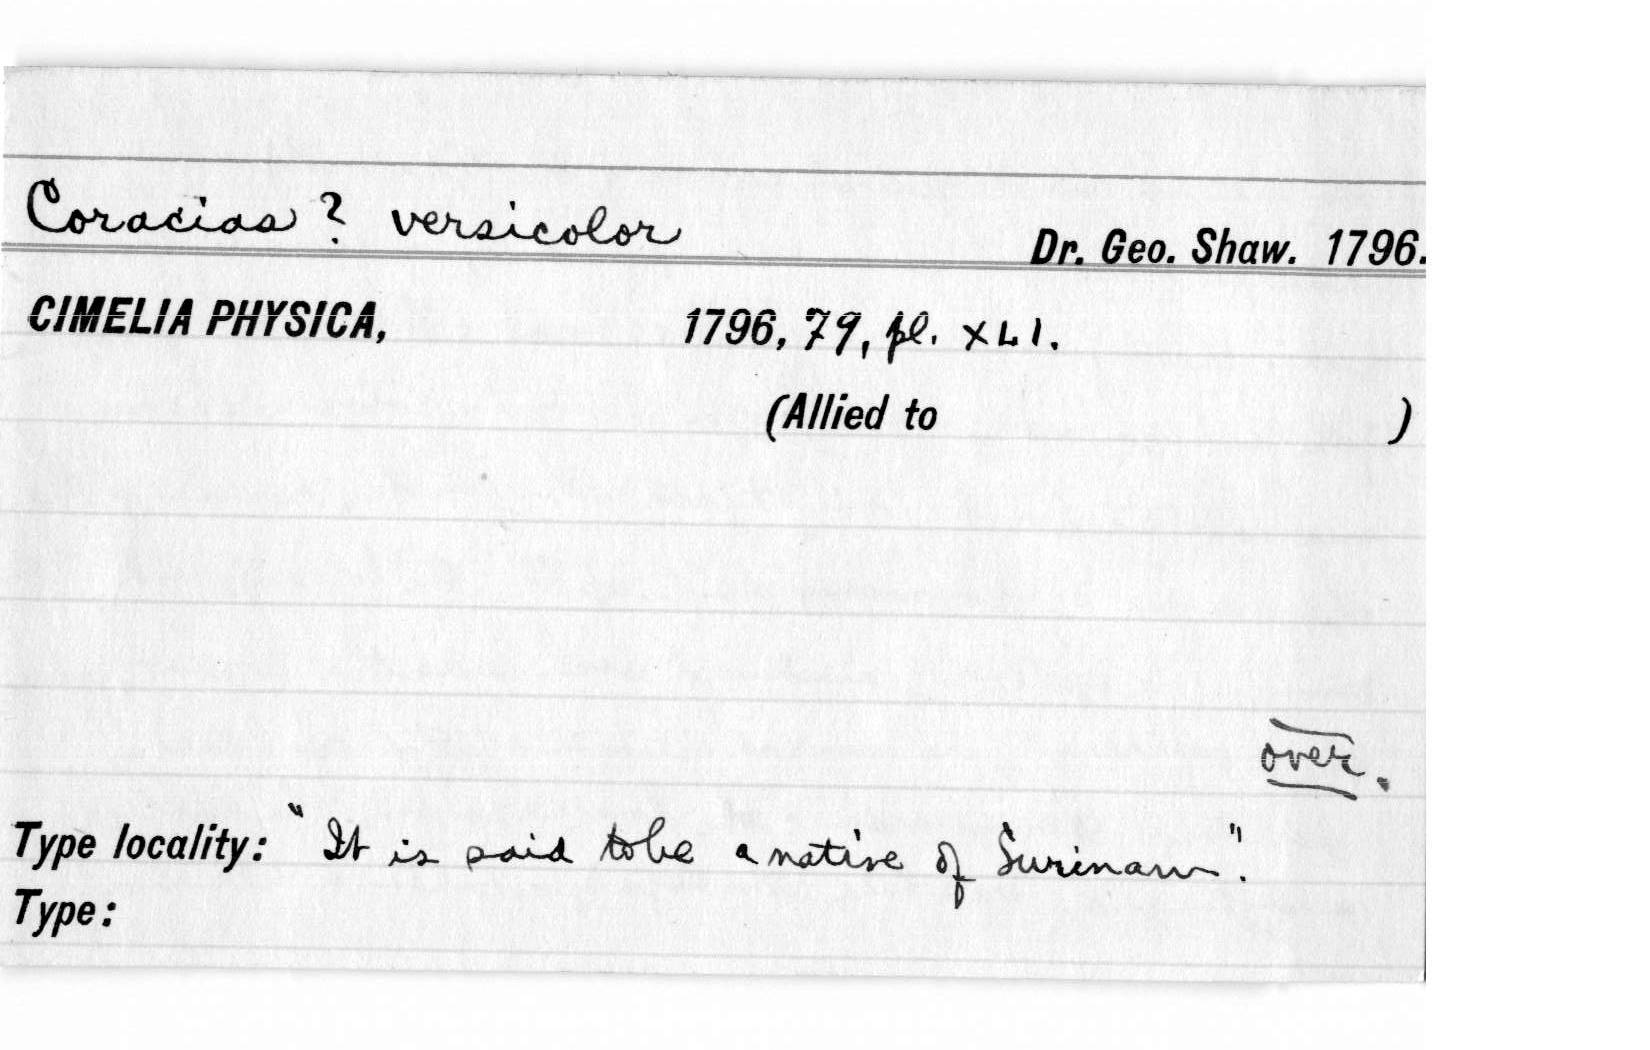 Coracias ? versicolor Dr. Geo. Shaw. 1796.
CIMELIA PHYSICA, 1796, 79, pl. XLI.
(Allied to )
over.
Type locality: "It is said to be a native of Surinam".
Type: